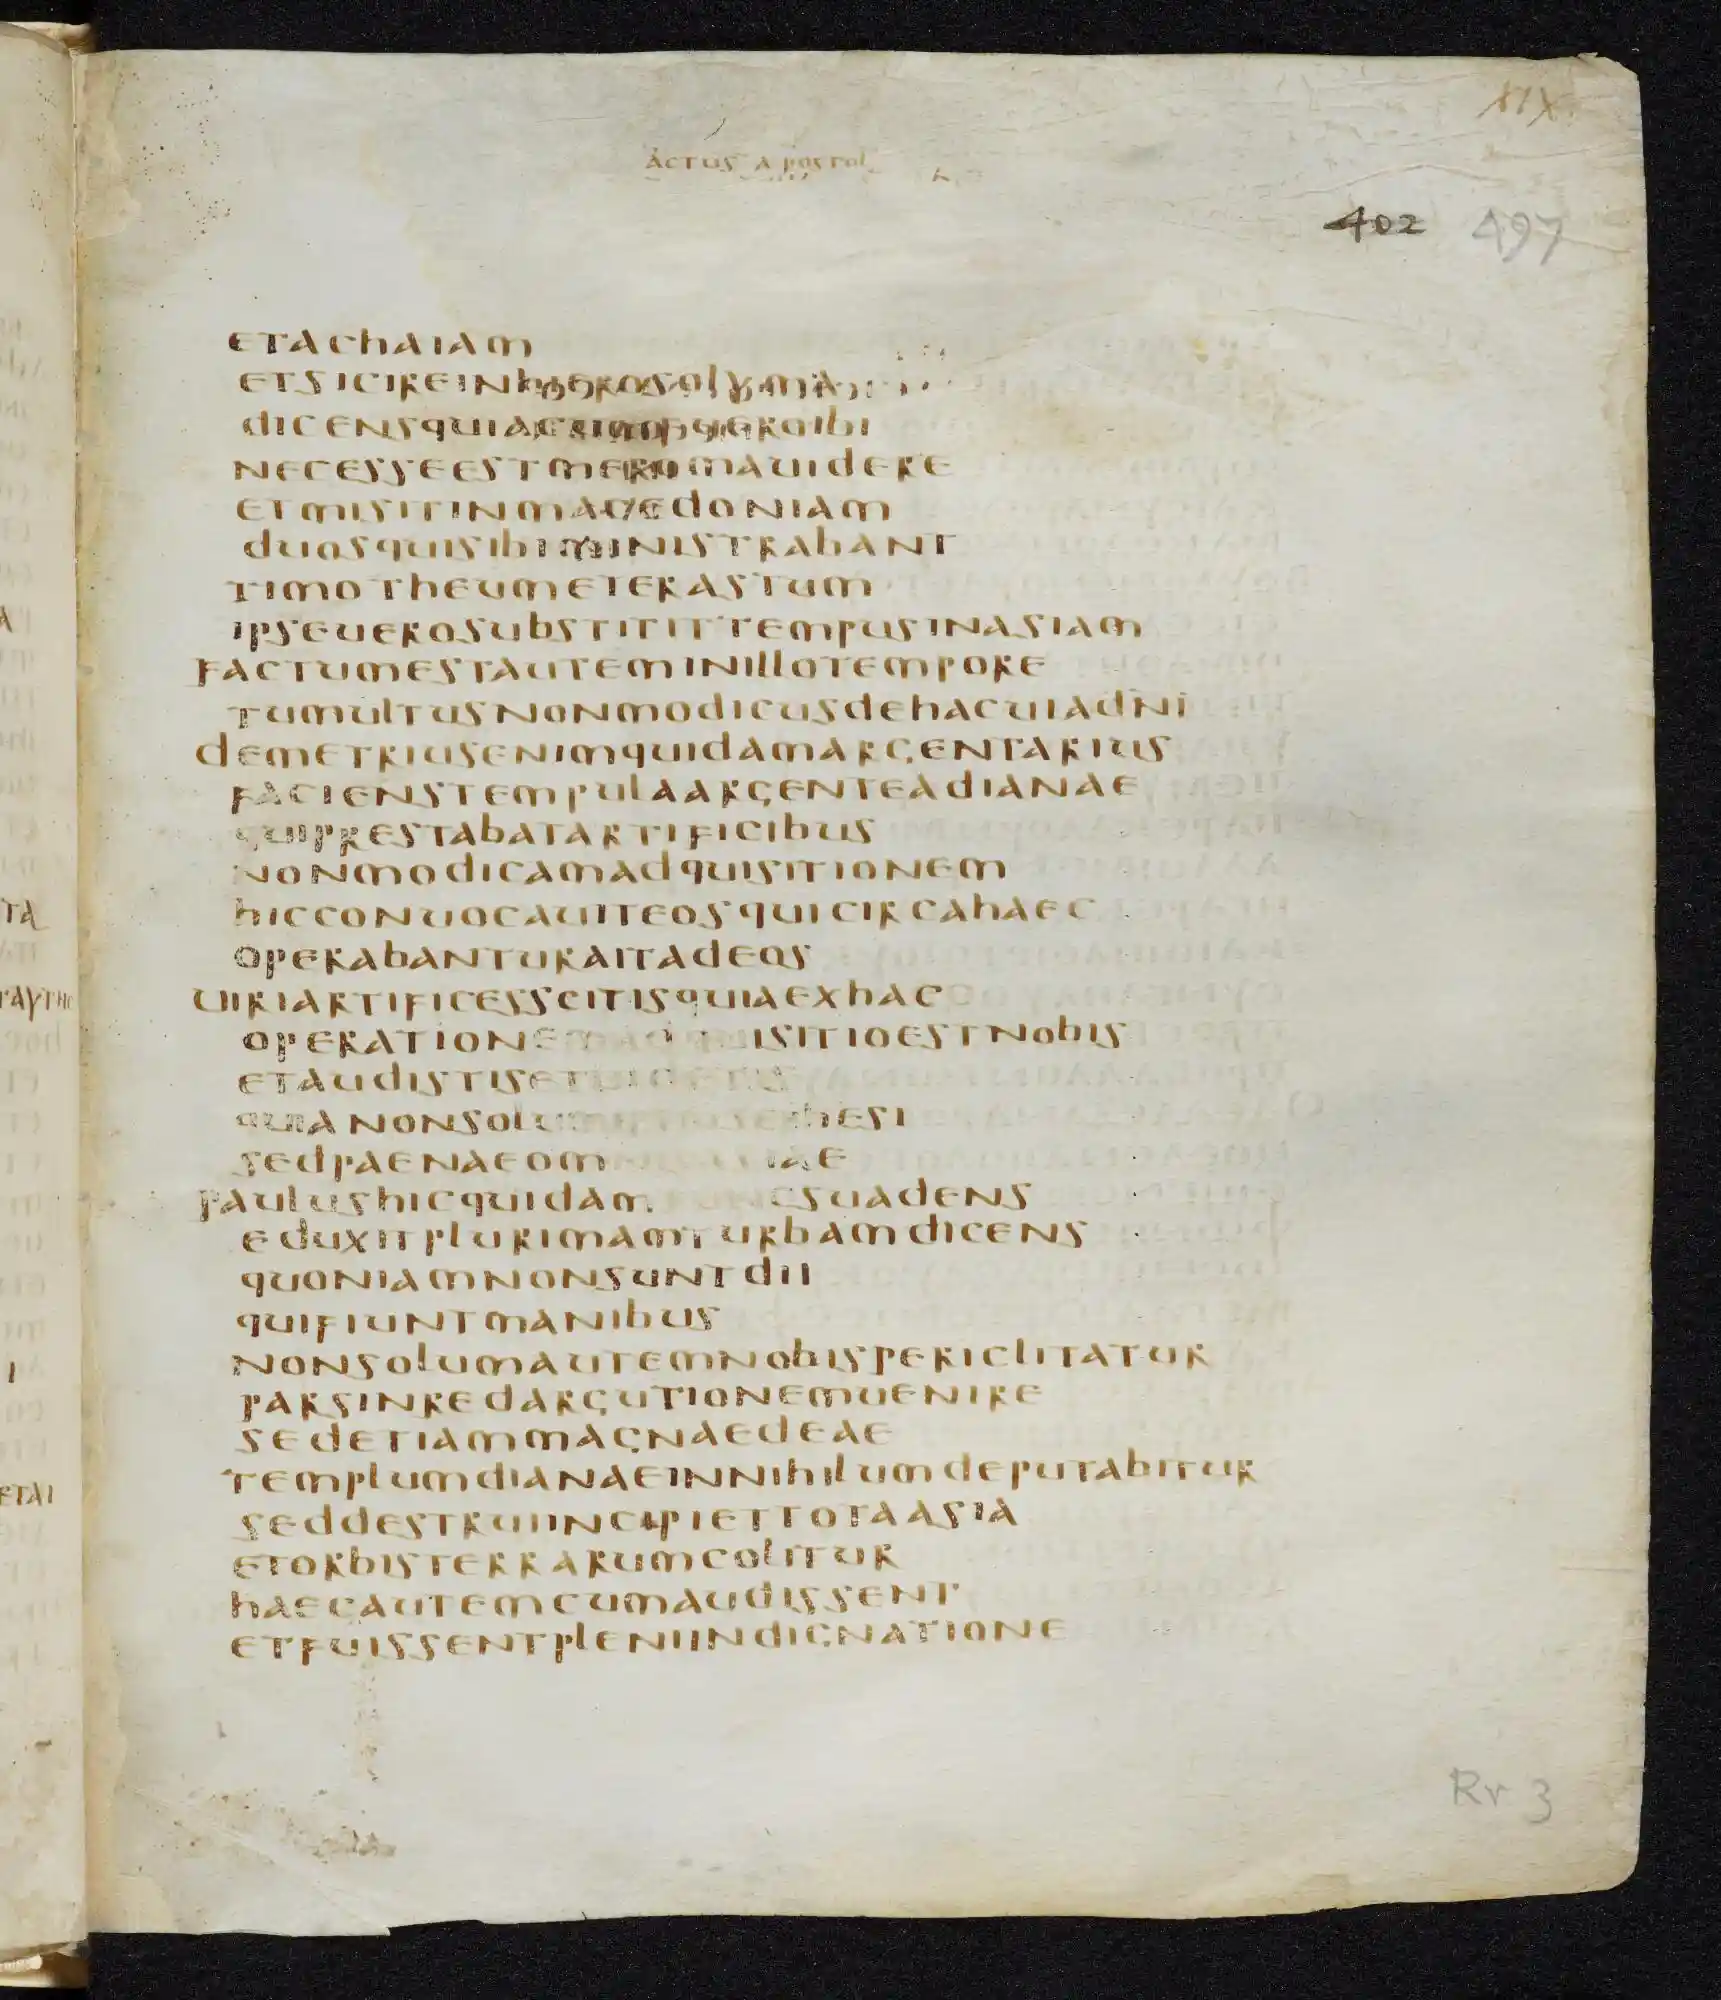 XIX
ACTUS APOSTOL
402 497
ETACHAIAM
ETSICIREINHIEROSOLYMA
DICENSQUIA IBI
NECESSEESTMEROMAUIDERE
ETMISITINMACEDONIAM
DUOSQUISIBIMINISTRABANT
TIMOTHEUMETERASTUM
IPSEUEROSUBSTITITTEMPUSINASIAM
FACTUMESTAUTEMINILLOTEMPORE
TUMULTUSNONMODICUSDEHACUIADN̄I
DEMETRIUSENIMQUIDAMARGENTARIUS
FACIENSTEMPULAARGENTEADIANAE
QUIPRESTABATARTIFICIBUS
NONMODICAMADQUISITIONEM
HICCONUOCAUITEOSQUICIRCAHAEC
OPERABANTURAITADEOS
UIRIARTIFICESSCITISQUIAEXHAC
OPERATIONE ISITIOESTNOBIS
ETAUDISTISETUIDETIS
QUIANONSOLUM HESI
SEDPAENAEOM IAE
PAULUSHICQUIDAM SUADENS
EDUXITPLURIMAMTURBAMDICENS
QUONIAMNONSUNTDII
QUIFIUNTMANIBUS
NONSOLUMAUTEMNOBISPERICLITATUR
PARSINREDARGUTIONEMUENIRE
SEDETIAMMAGNAEDEAE
TEMPLUMDIANAEINNIHILUMDEPUTABITUR
SEDDESTRUIINCIPIETTOTAASIA
ETORBISTERRARUMCOLITUR
HAECAUTEMCUMAUDISSENT
ETFUISSENTPLENIINDIGNATIONE
Rr 3